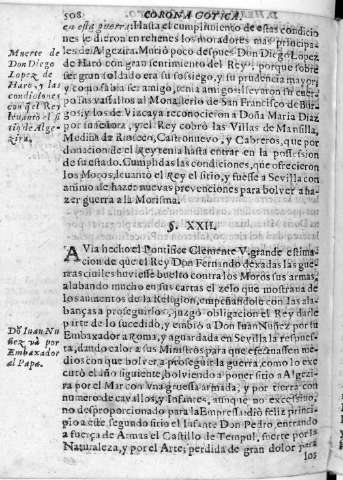 508 CORONA GOTICA,
en esta guerra. Hasta el cumplimiento de estas condicio
nes le dieron en rehenes los moradores mas principa-
les de Algezira. Murió poco despues Don Diego Lopez
de Haro con gran sentimiento del Rey; porque sobre
ser gran soldado era su sossiego, y su prudencia mayor;
y como sabia ser amigo, tenia amigos: llevaron
sus vassallos al Monasterio de San Francisco de Bur
gos, y los de Vizcaya reconocieron a Doña Maria Diaz
por su señora, y el Rey cobró las Villas de Mansilla,
Medina de Rioseco, Castronuevo, y Cabreros, que por
donacion de el Rey tenia hasta entrar en la possession
de su estado. Cumplidas las condiciones, que ofrecieron
los Moros, levantó el Rey el sitio, y fuesse a Sevilla con
animo de hazer nuevas prevenciones para bolver a ha-
zer guerra a la Morisma.
Muerte de
Don Diego
Lopez de
Haro, y las
condiciones
con q el Rey
levantó el si
tio de Alge-
zira.
§. XXII.
AVia hecho el Pontifice Clemente V. grande estima-
cion de que el Rey Don Fernando dexadas las gue-
rras civiles huviesse buelto contra los Moros sus armas,
alabando mucho en sus cartas el zelo que mostrava de
los aumentos de la Religion, empeñandole con las ala-
banças a proseguirlos; juzgó obligacion el Rey darle
parte de lo sucedido, y embió a Don Iuan Nuñez por su
Embaxador a Roma, y aguardada en Sevilla la respues-
ta, dando calor a sus Ministros para que efetuassen me-
dios con que bolver a proseguir la guerra, como lo exe
cutó el año siguiente, bolviendo a poner sitio a Algezi
ra por el Mar con vna gruessa armada, y por tierra con
numero de cavallos, y Infantes, aunque no excessivo,
no desproporcionado para la Empressa: dió feliz princi-
pio a este segundo sitio el Infante Don Pedro, entrando
a fuerça de Armas el Castillo de Tempul, fuerte por la
Naturaleza, y por el Arte; perdida de gran dolor para
los
Dõ Iuan Nu
ñez và por
Embaxador
al Papa.